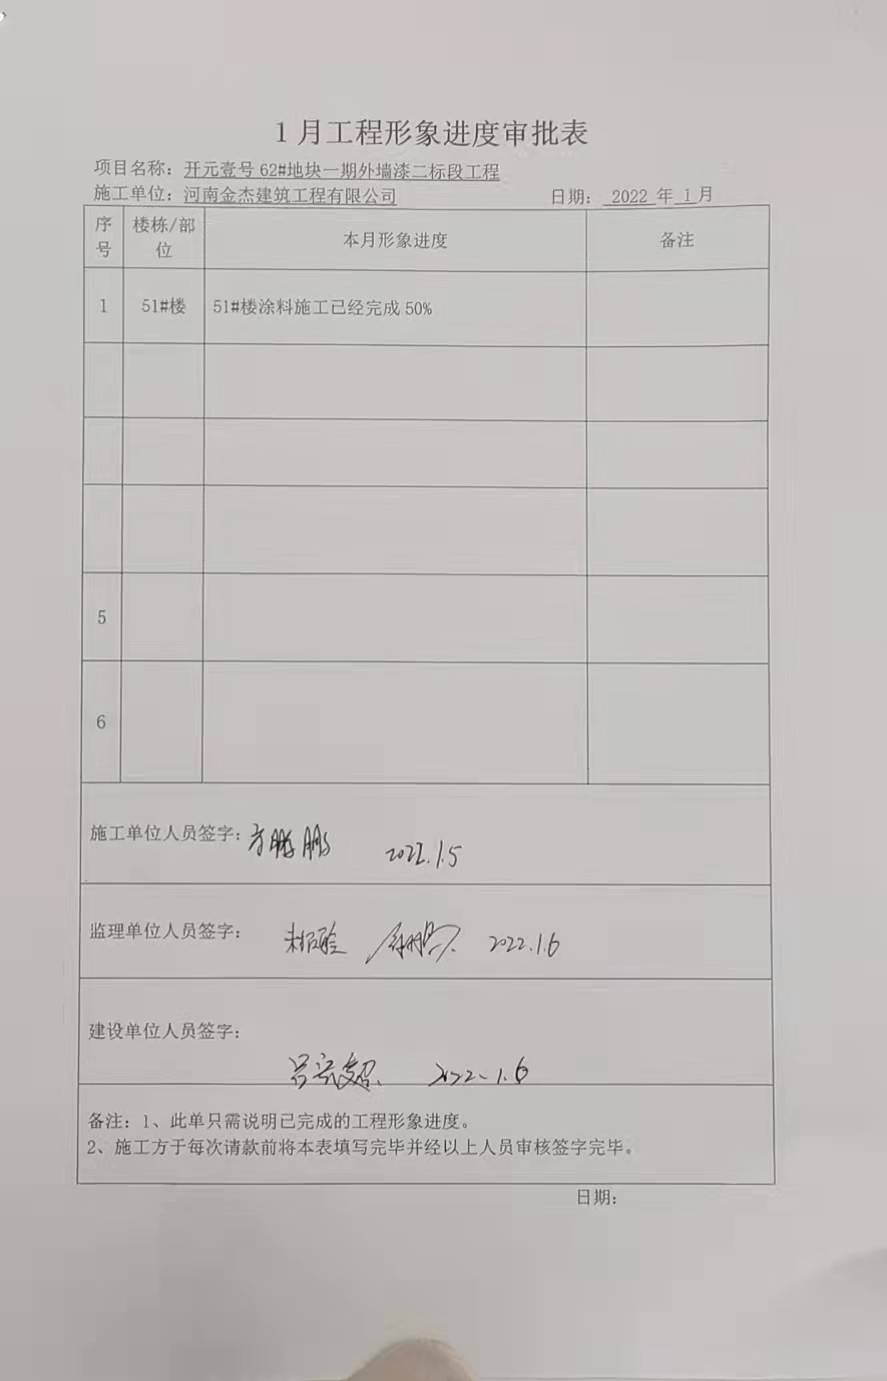 1月工程形象进度审批表
项目名称：开元壹号62#地块一期外墙漆二标段工程
施工单位：河南金杰建筑工程有限公司 日期： 2022 年 1 月
序号 楼栋/部位 本月形象进度 备注
1 51#楼 51#楼涂料施工已经完成50%
5
6
施工单位人员签字：方鹏鹏 2022.1.5
监理单位人员签字： 2022.1.6
建设单位人员签字：
2022.1.6
备注：1、此单只需说明已完成的工程形象进度。
2、施工方于每次请款前将本表填写完毕并经以上人员审核签字完毕。
日期：